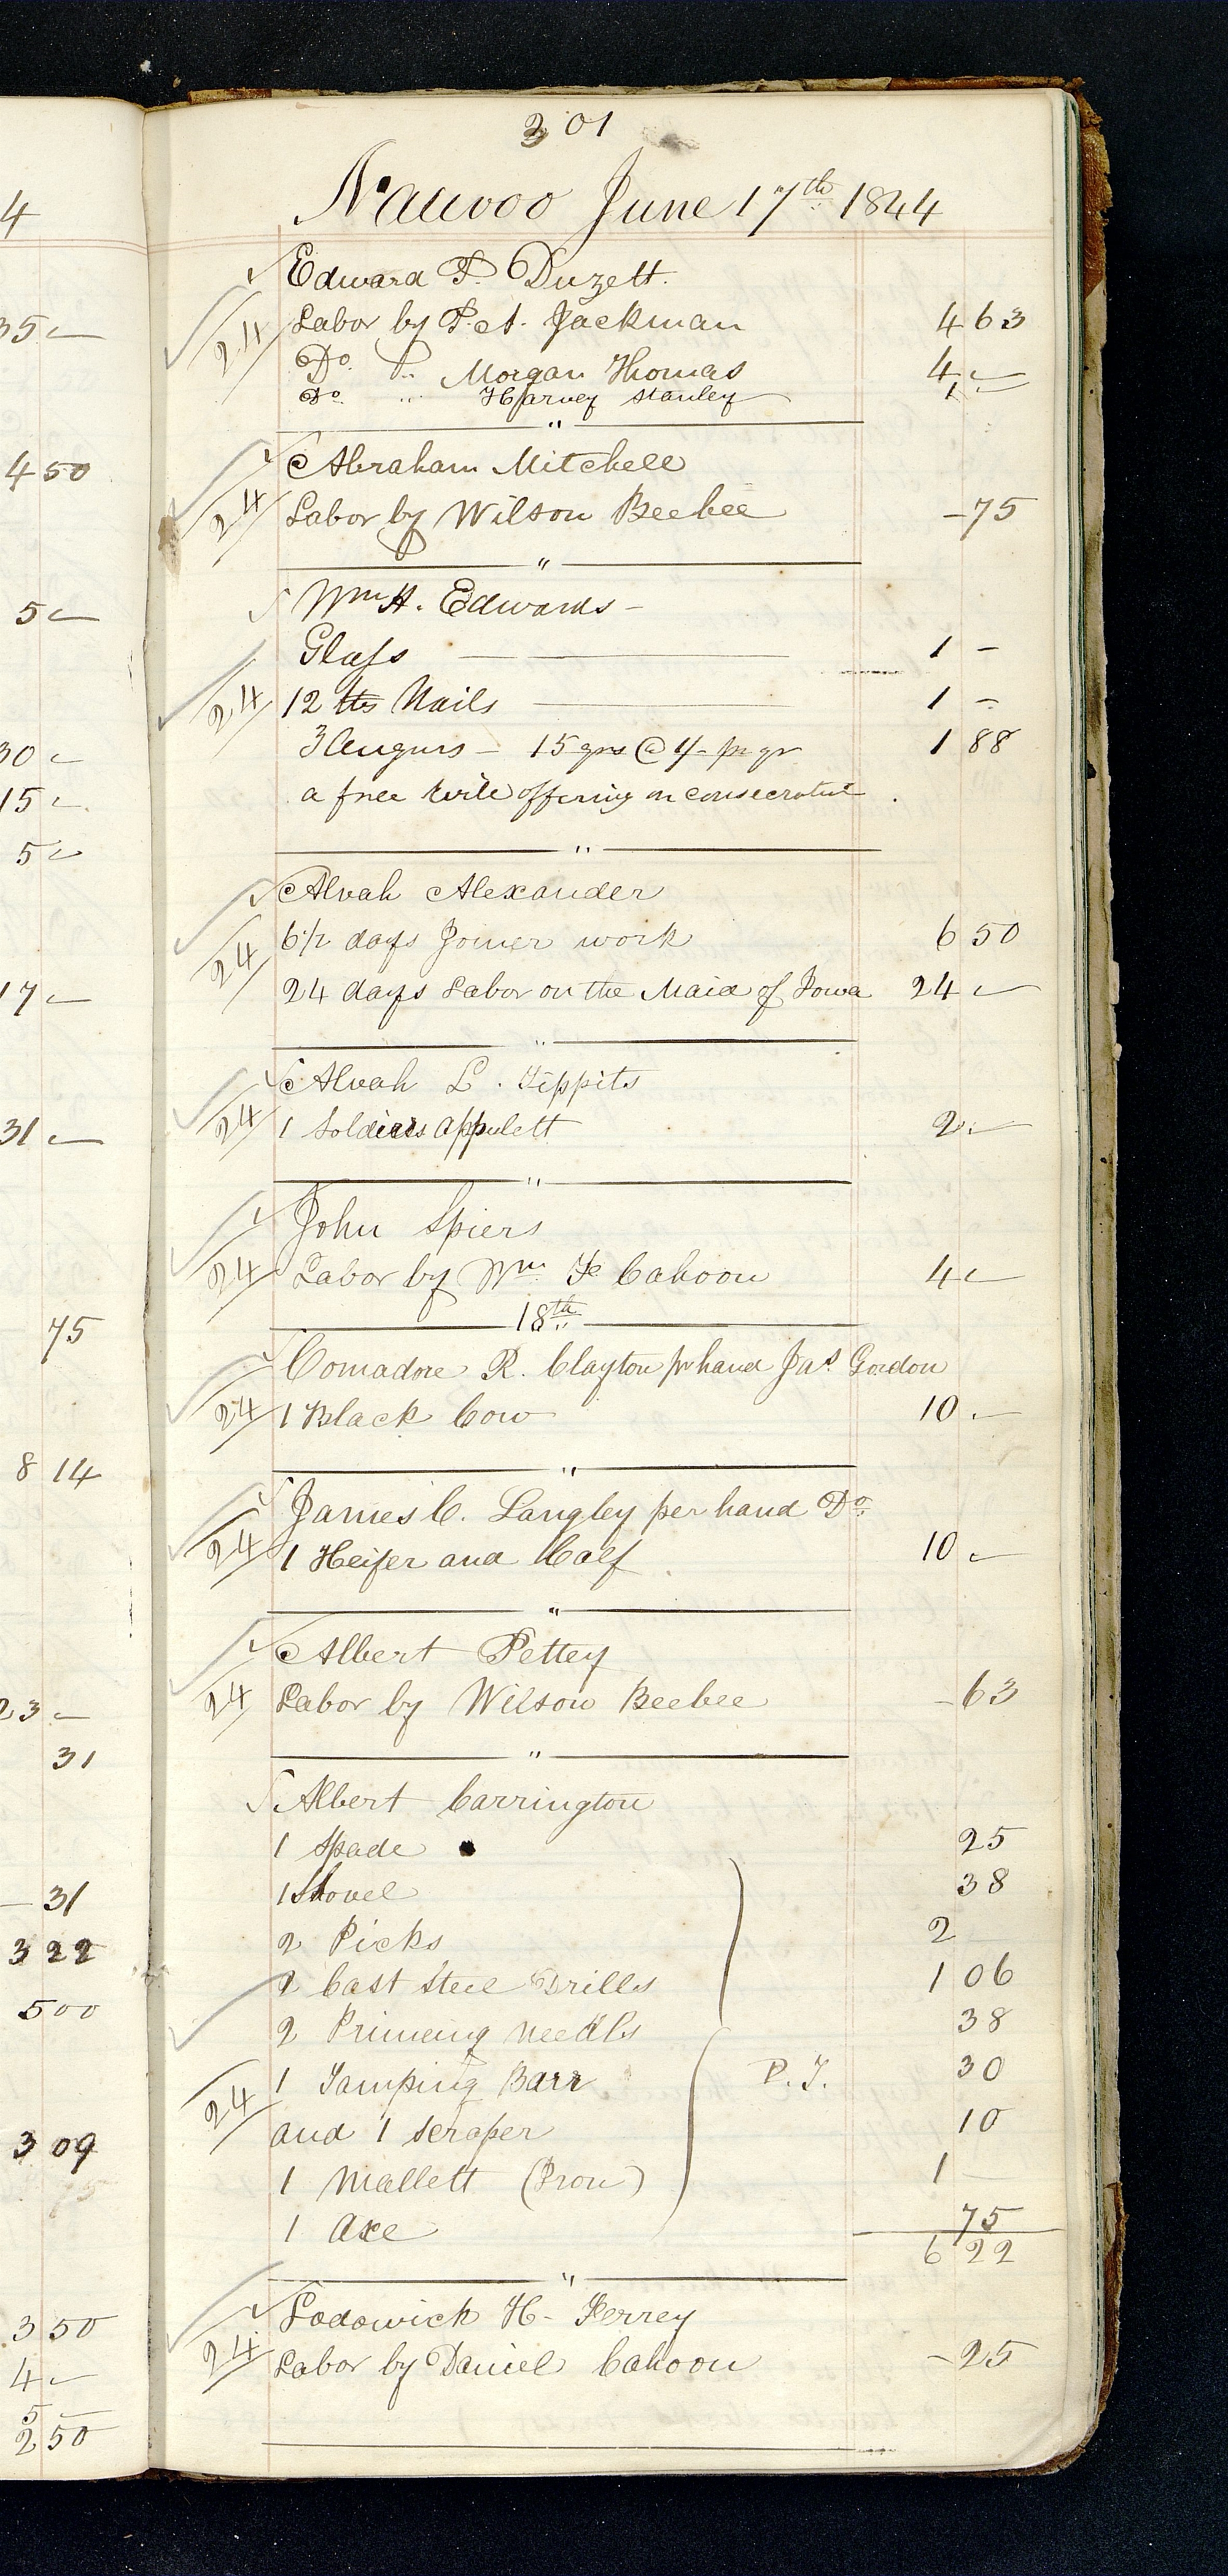 301
Nauvoo June 17th 1844
Edward P. Duzett.
24 Labor by P. A. Jackman 4 63
Do. Do. Morgan Thomas 4 -
Do. " Harvey Stanley 1 -
"
Abraham Mitchell
24 Labor by Wilson Beebee - 75
"
Wm H. Edwards -
Glass 1 -
24 12 lbs Nails 1 -
3 Augurs - 15 qrs @ 1/- pr qr 1 88
a free will offering on consecration
"
Alvah Alexander
24 6 1/2 days Joiner work 6 50
24 days Labor on the Maid of Iowa 24 -
"
Alvah L. Tippits
24 1 Soldiers appulett 2 -
"
John Spiers
24 Labor by Wm F Cahoon 4 -
18th
Comadore R. Clayton pr hand Jas. Gordon
24 1 Black Cow 10 -
"
James C. Langley per hand Do.
24 1 Heifer and Calf 10 -
"
Albert Pettey
24 Labor by Wilson Beebee - 63
"
Albert Carrington
1 Spade 25
1 Shovel 38
2 Picks 2
2 Cast Steel Drills 1 06
2 Primeing Needls 38
24 1 Tamping Barr P. T. 30
and 1 scraper 10
1 Mallett (Iron) 1
1 Axe 75
6 22
"
Lodowick H- Ferrey
24 Labor by Daniel Cahoon - 25
4
35 -
4 50
5 -
30 -
15 -
5 -
17 -
31 -
75
8 14
23 -
31
- 31
3 22
5 00
3 09
3 50
4 -
5 -
2 50